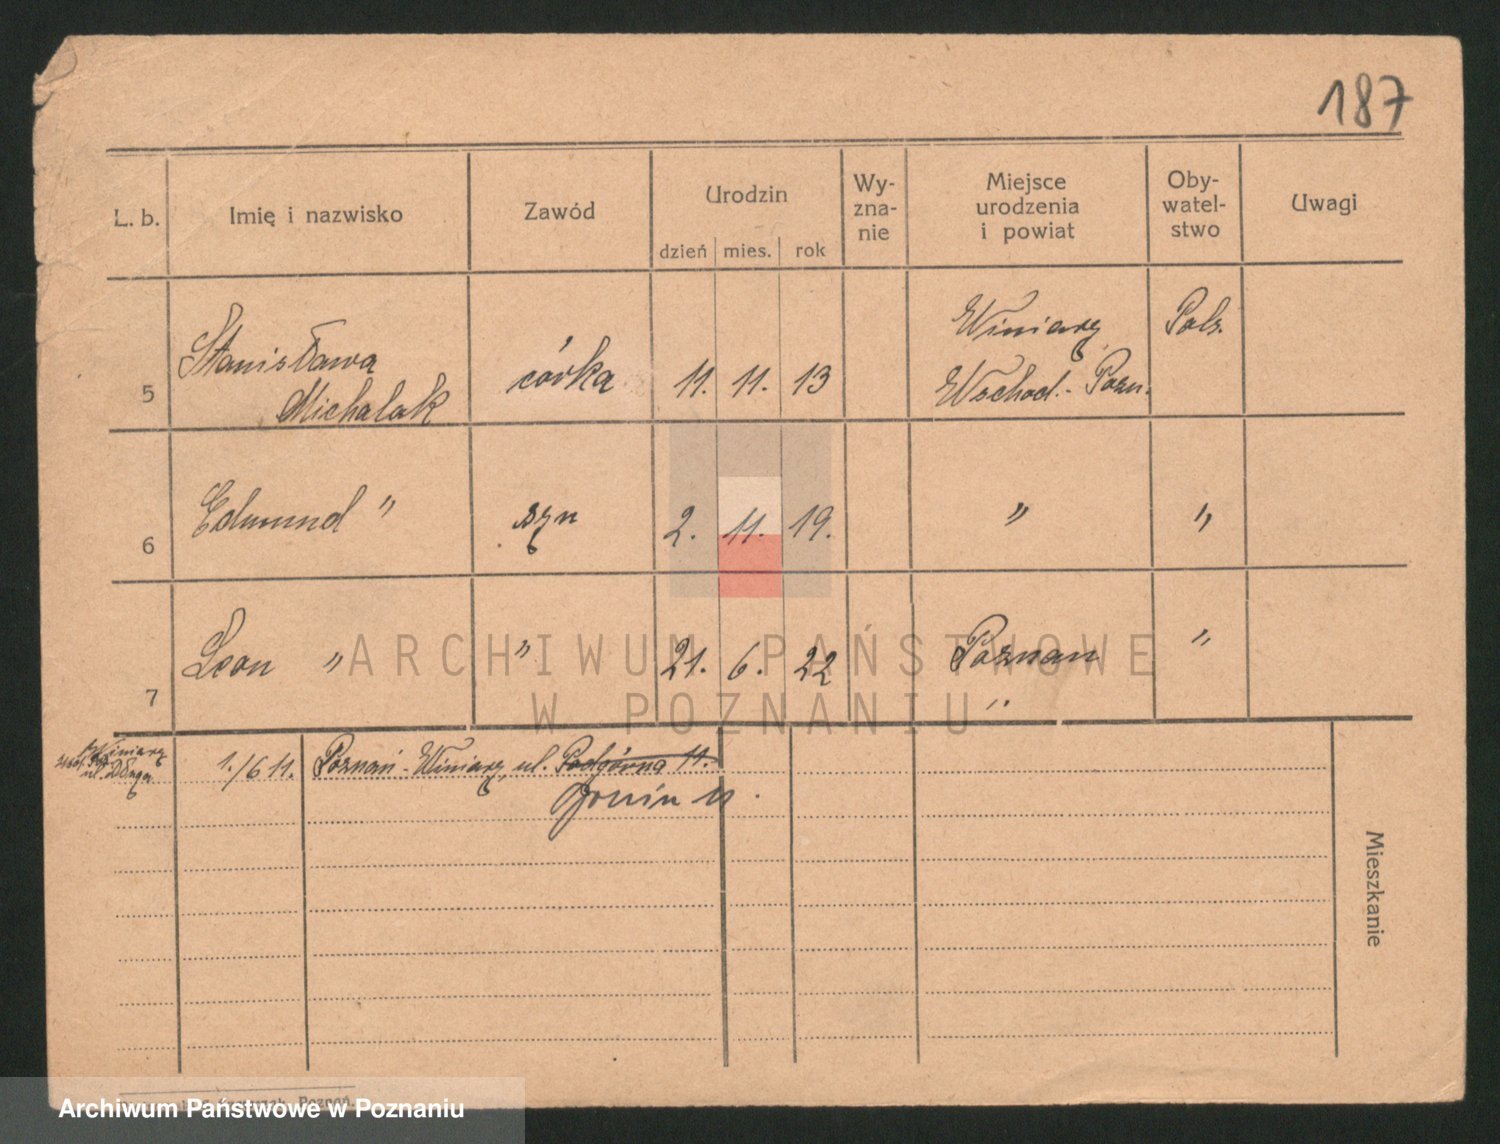 187
L. b. Imię i nazwisko Zawód Urodzin Wy-zna-nie Miejsce urodzenia i powiat Oby-watel-stwo Uwagi
dzień mies. rok
5 Stanisława Michalak córka 11. 11. 13 Winiary Wschod.- Pozn. Pols.
6 Edmund " syn 2. 11. 19. " "
7 Leon " " 21. 6. 22 Poznan "
"
Winiary
ul. Długa
1./6 11. Poznań - Winiary, ul. Podgórna 11.
11.
Mieszkanie
Poznań.
ARCHIWUM PAŃSTWOWE
W POZNANIU
Archiwum Państwowe w Poznaniu